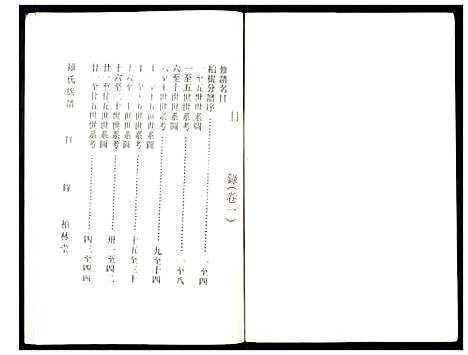 目 錄（卷一）
修譜名目
柏樹分譜序………………一至四
一至五世世系圖
一至五世世系考………………一至八
六至十世世系圖
六至十世世系考………………九至十四
十一至十五世世系圖
十一至十五世世系考………………十五至三十
十六至二十世世系圖
十六至二十世世系考………………卅一至四二
廿一至廿五世世系圖
廿一至廿五世世系考………………四三至四四
氏族譜 目 錄 柏林堂